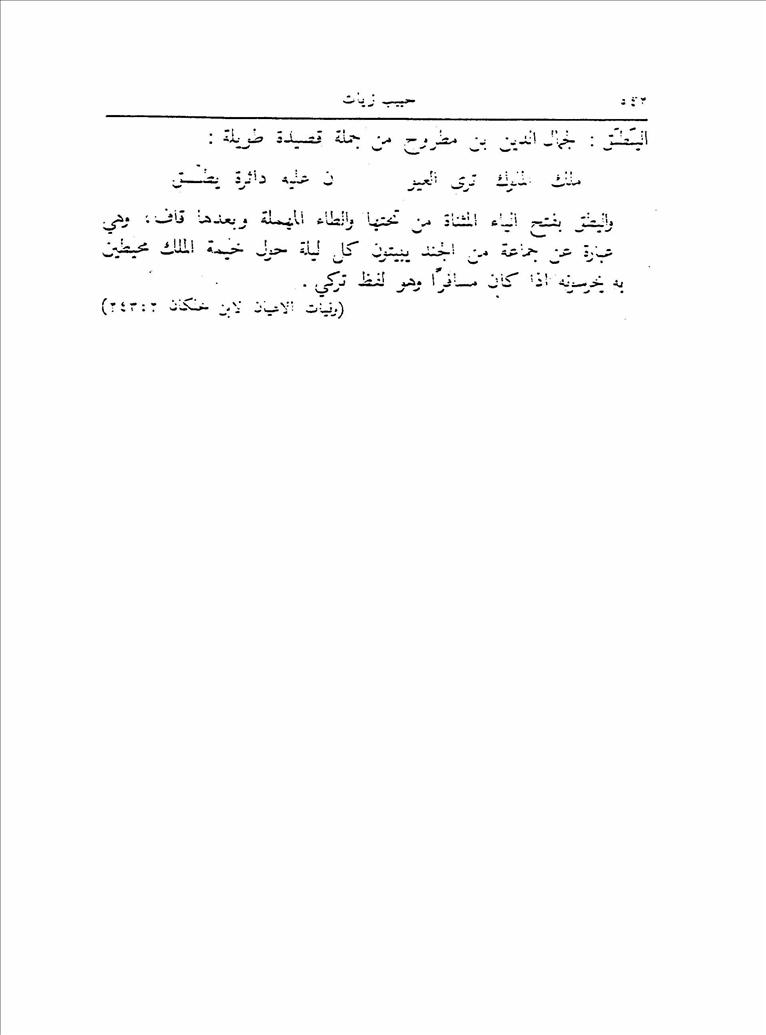 ٥٤٢ حبيب زيات
اليَطَق : لجمال الدين بن مطروح من جملة قصيدة طويلة :
ملك الملوك ترى العيو ن عليه دائرة يطـــق
واليطق بفتح الياء المثناة من تحتها والطاء المهملة وبعدها قاف، وهي
عبارة عن جماعة من الجند يبيتون كل ليلة حول خيمة الملك محيطين
به يحرسونه اذا كان مسافرًا وهو لفظ تركي .
(وفيات الاعيان لابن خلكان ٢ : ٣٤٣)